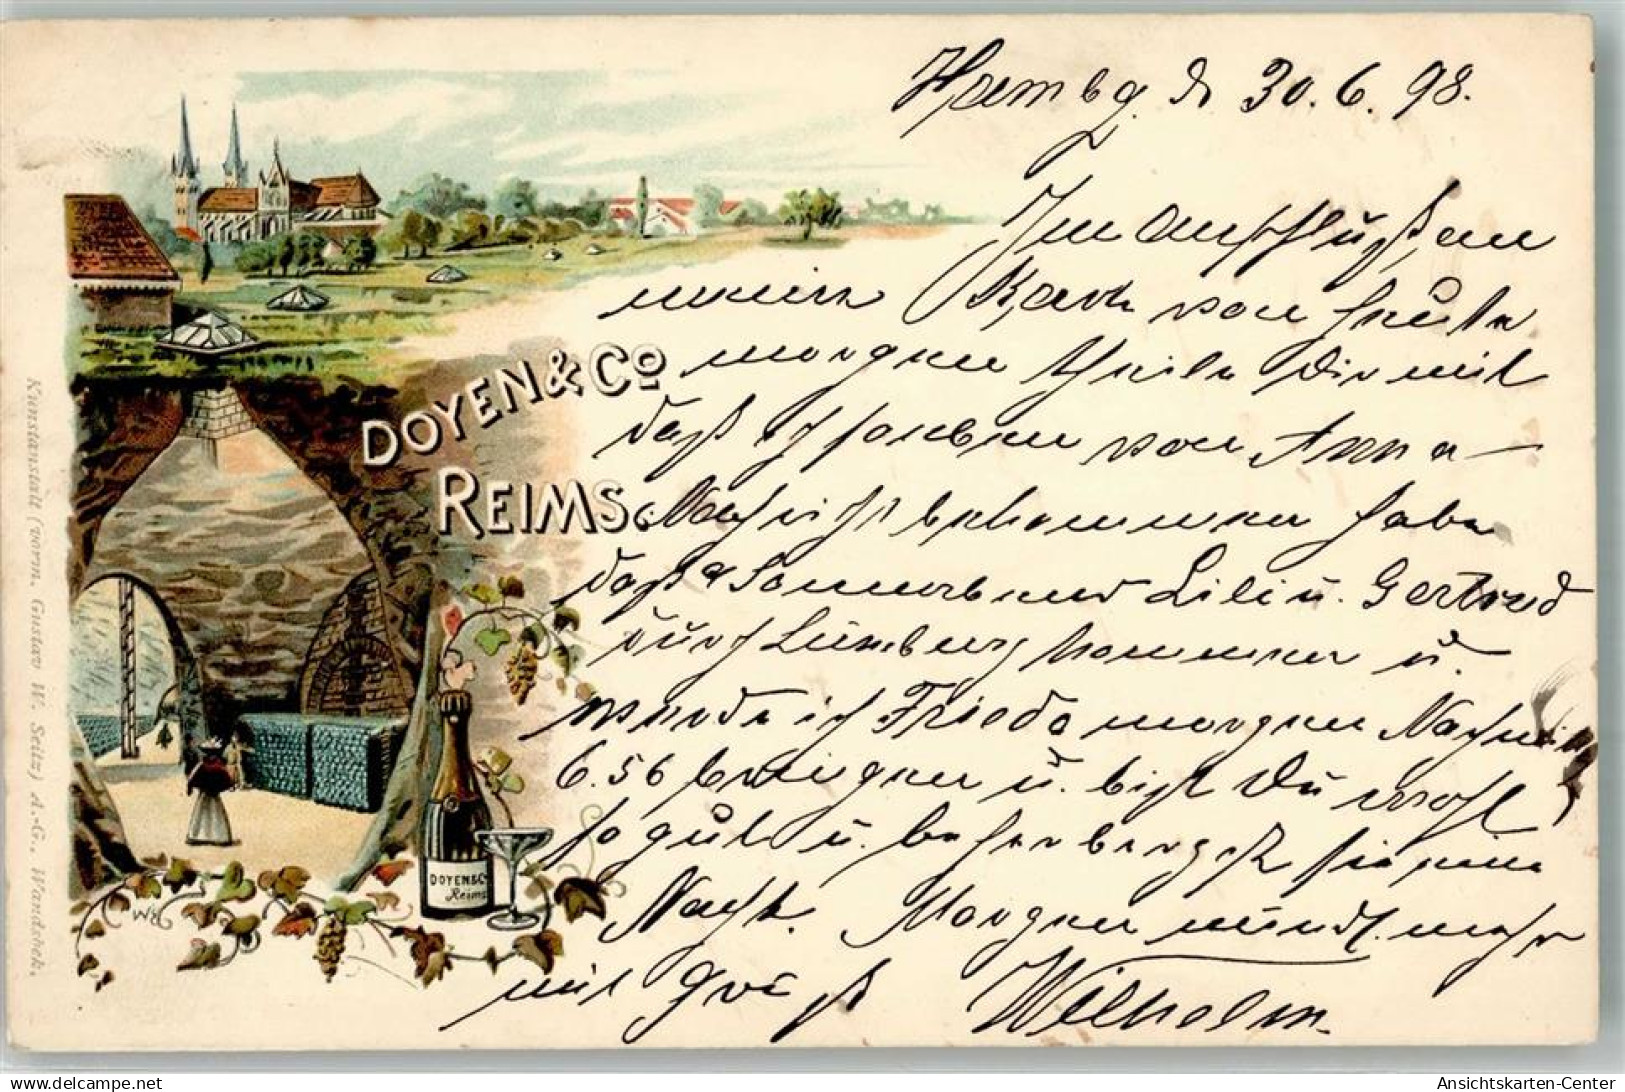 Hambg. d. 30.6.98.
Im Anschluß an
meine Karte von heute
morgen theile Dir mit
daß ich soeben von Anna
Nachricht bekommen habe
daß Sonnabend Lili u. Gertrud
durch Lüneburg kommen u.
werde ich Frieda morgen Nachm.
6.56 bringen u. bist Du wohl
so gut u. beherbergst sie eine
Nacht. Morgen mündl. mehr
mit Gruß Wilhelm.
DOYEN & Co
REIMS
DOYEN & Co
Reims
WB
Kunstanstalt (vorm. Gustav W. Seitz) A.-G., Wandsbek.
delcampe.net
Ansichtskarten-Center